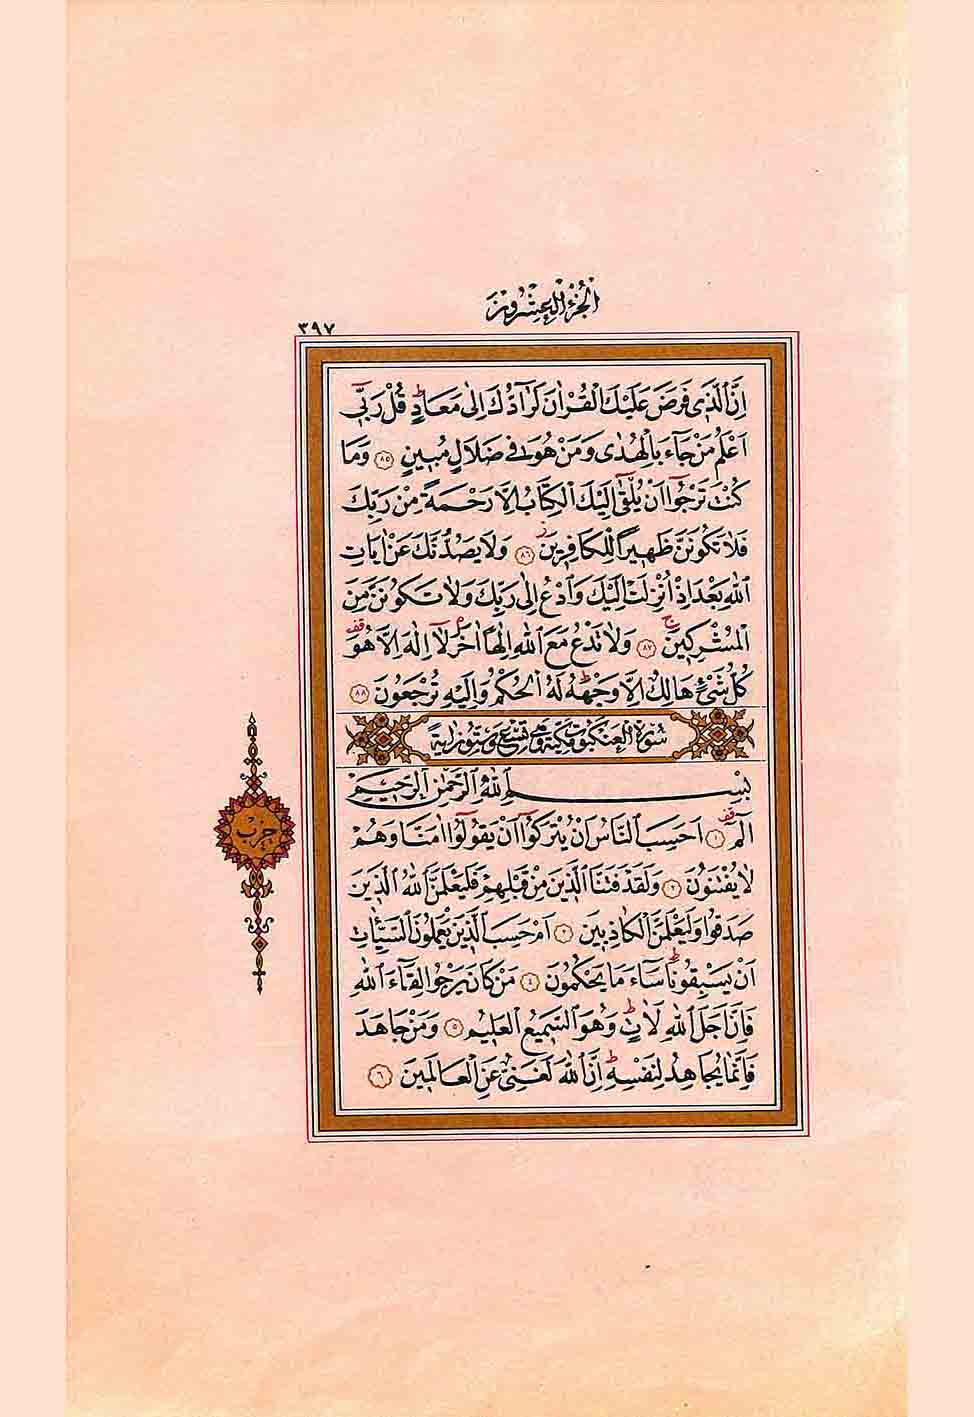 الجزء العشرون
٣٩٧
اِنَّ الَّذ۪ي فَرَضَ عَلَيْكَ الْقُرْاٰنَ لَرَٓادُّكَ اِلٰى مَعَادٍۜ قُلْ رَبّ۪ٓي
اَعْلَمُ مَنْ جَٓاءَ بِالْهُدٰى وَمَنْ هُوَ ف۪ي ضَلَالٍ مُب۪ينٍ ﴿٨٥﴾ وَمَا
كُنْتَ تَرْجُٓوا اَنْ يُلْقٰٓى اِلَيْكَ الْكِتَابُ اِلَّا رَحْمَةً مِنْ رَبِّكَ
فَلَا تَكُونَنَّ ظَه۪يرًا لِلْكَافِر۪ينَۘ ﴿٨٦﴾ وَلَا يَصُدُّنَّكَ عَنْ اٰيَاتِ
اللّٰهِ بَعْدَ اِذْ اُنْزِلَتْ اِلَيْكَ وَادْعُ اِلٰى رَبِّكَ وَلَا تَكُونَنَّ مِنَ
الْمُشْرِك۪ينَۚ ﴿٨٧﴾ وَلَا تَدْعُ مَعَ اللّٰهِ اِلٰهًا اٰخَرَۢ لَٓا اِلٰهَ اِلَّا هُوَ۠
كُلُّ شَيْءٍ هَالِكٌ اِلَّا وَجْهَهُۜ لَهُ الْحُكْمُ وَاِلَيْهِ تُرْجَعُونَ ﴿٨٨﴾
سورة العنكبوت مكية وهي تسع وستون اية
بِسْمِ اللّٰهِ الرَّحْمٰنِ الرَّح۪يمِ
الٓمٓ۠ ﴿١﴾ اَحَسِبَ النَّاسُ اَنْ يُتْرَكُٓوا اَنْ يَقُولُٓوا اٰمَنَّا وَهُمْ
لَا يُفْتَنُونَ ﴿٢﴾ وَلَقَدْ فَتَنَّا الَّذ۪ينَ مِنْ قَبْلِهِمْ فَلَيَعْلَمَنَّ اللّٰهُ الَّذ۪ينَ
صَدَقُوا وَلَيَعْلَمَنَّ الْكَاذِب۪ينَ ﴿٣﴾ اَمْ حَسِبَ الَّذ۪ينَ يَعْمَلُونَ السَّيِّـَٔاتِ
اَنْ يَسْبِقُونَاۜ سَٓاءَ مَا يَحْكُمُونَ ﴿٤﴾ مَنْ كَانَ يَرْجُوا لِقَٓاءَ اللّٰهِ
فَاِنَّ اَجَلَ اللّٰهِ لَاٰتٍۜ وَهُوَ السَّم۪يعُ الْعَل۪يمُ ﴿٥﴾ وَمَنْ جَاهَدَ
فَاِنَّمَا يُجَاهِدُ لِنَفْسِه۪ۜ اِنَّ اللّٰهَ لَغَنِيٌّ عَنِ الْعَالَم۪ينَ ﴿٦﴾
حزب